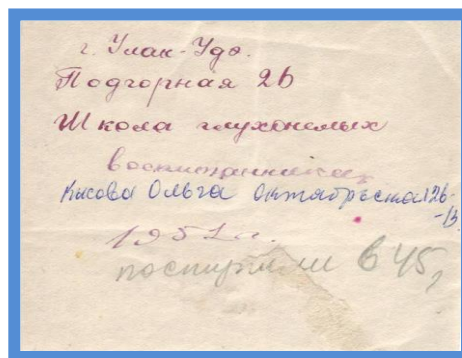 г. Улан-Удэ.
Подгорная 26
Школа глухонемых
воспитанница
Ольга Октябрьская 126-
-13
1951 г.
поступили в 45,